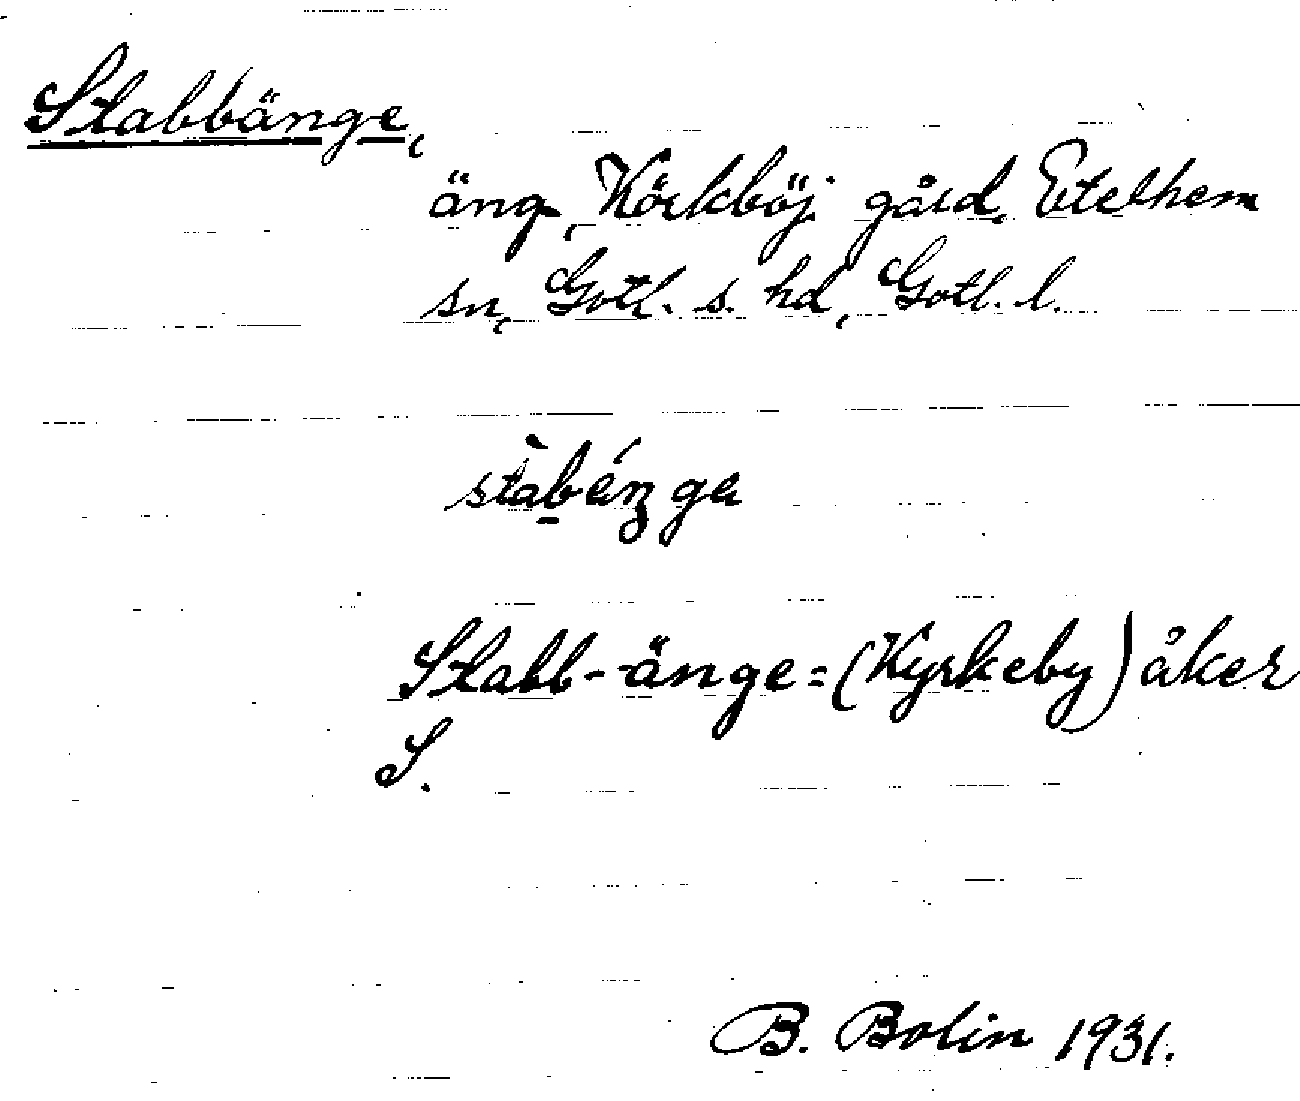 Stabbänge,
äng, Körkböj gård, Etelhem
sn, Gotl. s. hd, Gotl. l.
stàbénga
Stabb-änge = (Kyrkeby) åker
S.
B. Bolin 1931.